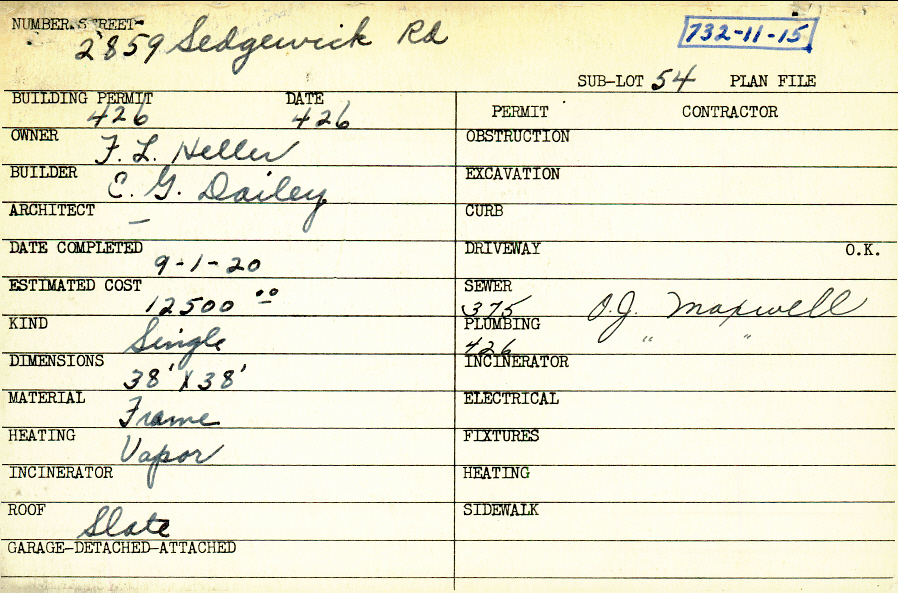 NUMBER STREET
2859 Sedgewick Rd
732-11-15
SUB-LOT 54 PLAN FILE
BUILDING PERMIT DATE
426 426
OWNER F. L. Heller
BUILDER C. G. Dailey
ARCHITECT —
DATE COMPLETED
9-1-20
ESTIMATED COST
12500 00
KIND
Single
DIMENSIONS
38' X 38'
MATERIAL
Frame
HEATING
Vapor
INCINERATOR
ROOF Slate
GARAGE-DETACHED-ATTACHED
PERMIT CONTRACTOR
OBSTRUCTION
EXCAVATION
CURB
DRIVEWAY O.K.
SEWER
375 O.J. Maxwell
PLUMBING
426 " "
INCINERATOR
ELECTRICAL
FIXTURES
HEATING
SIDEWALK